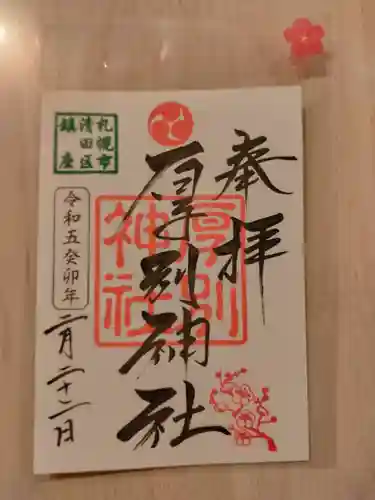 奉拝
厚別神社
厚別神社
札幌市
清田区
鎮座
令和五癸卯年
二月二十二日